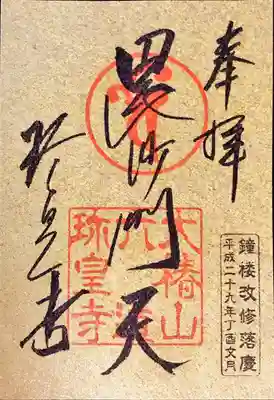 奉拝
毘沙門天
珍皇寺
大椿山
六道
珎皇寺
鐘楼改修落慶
平成二十九年丁酉文月